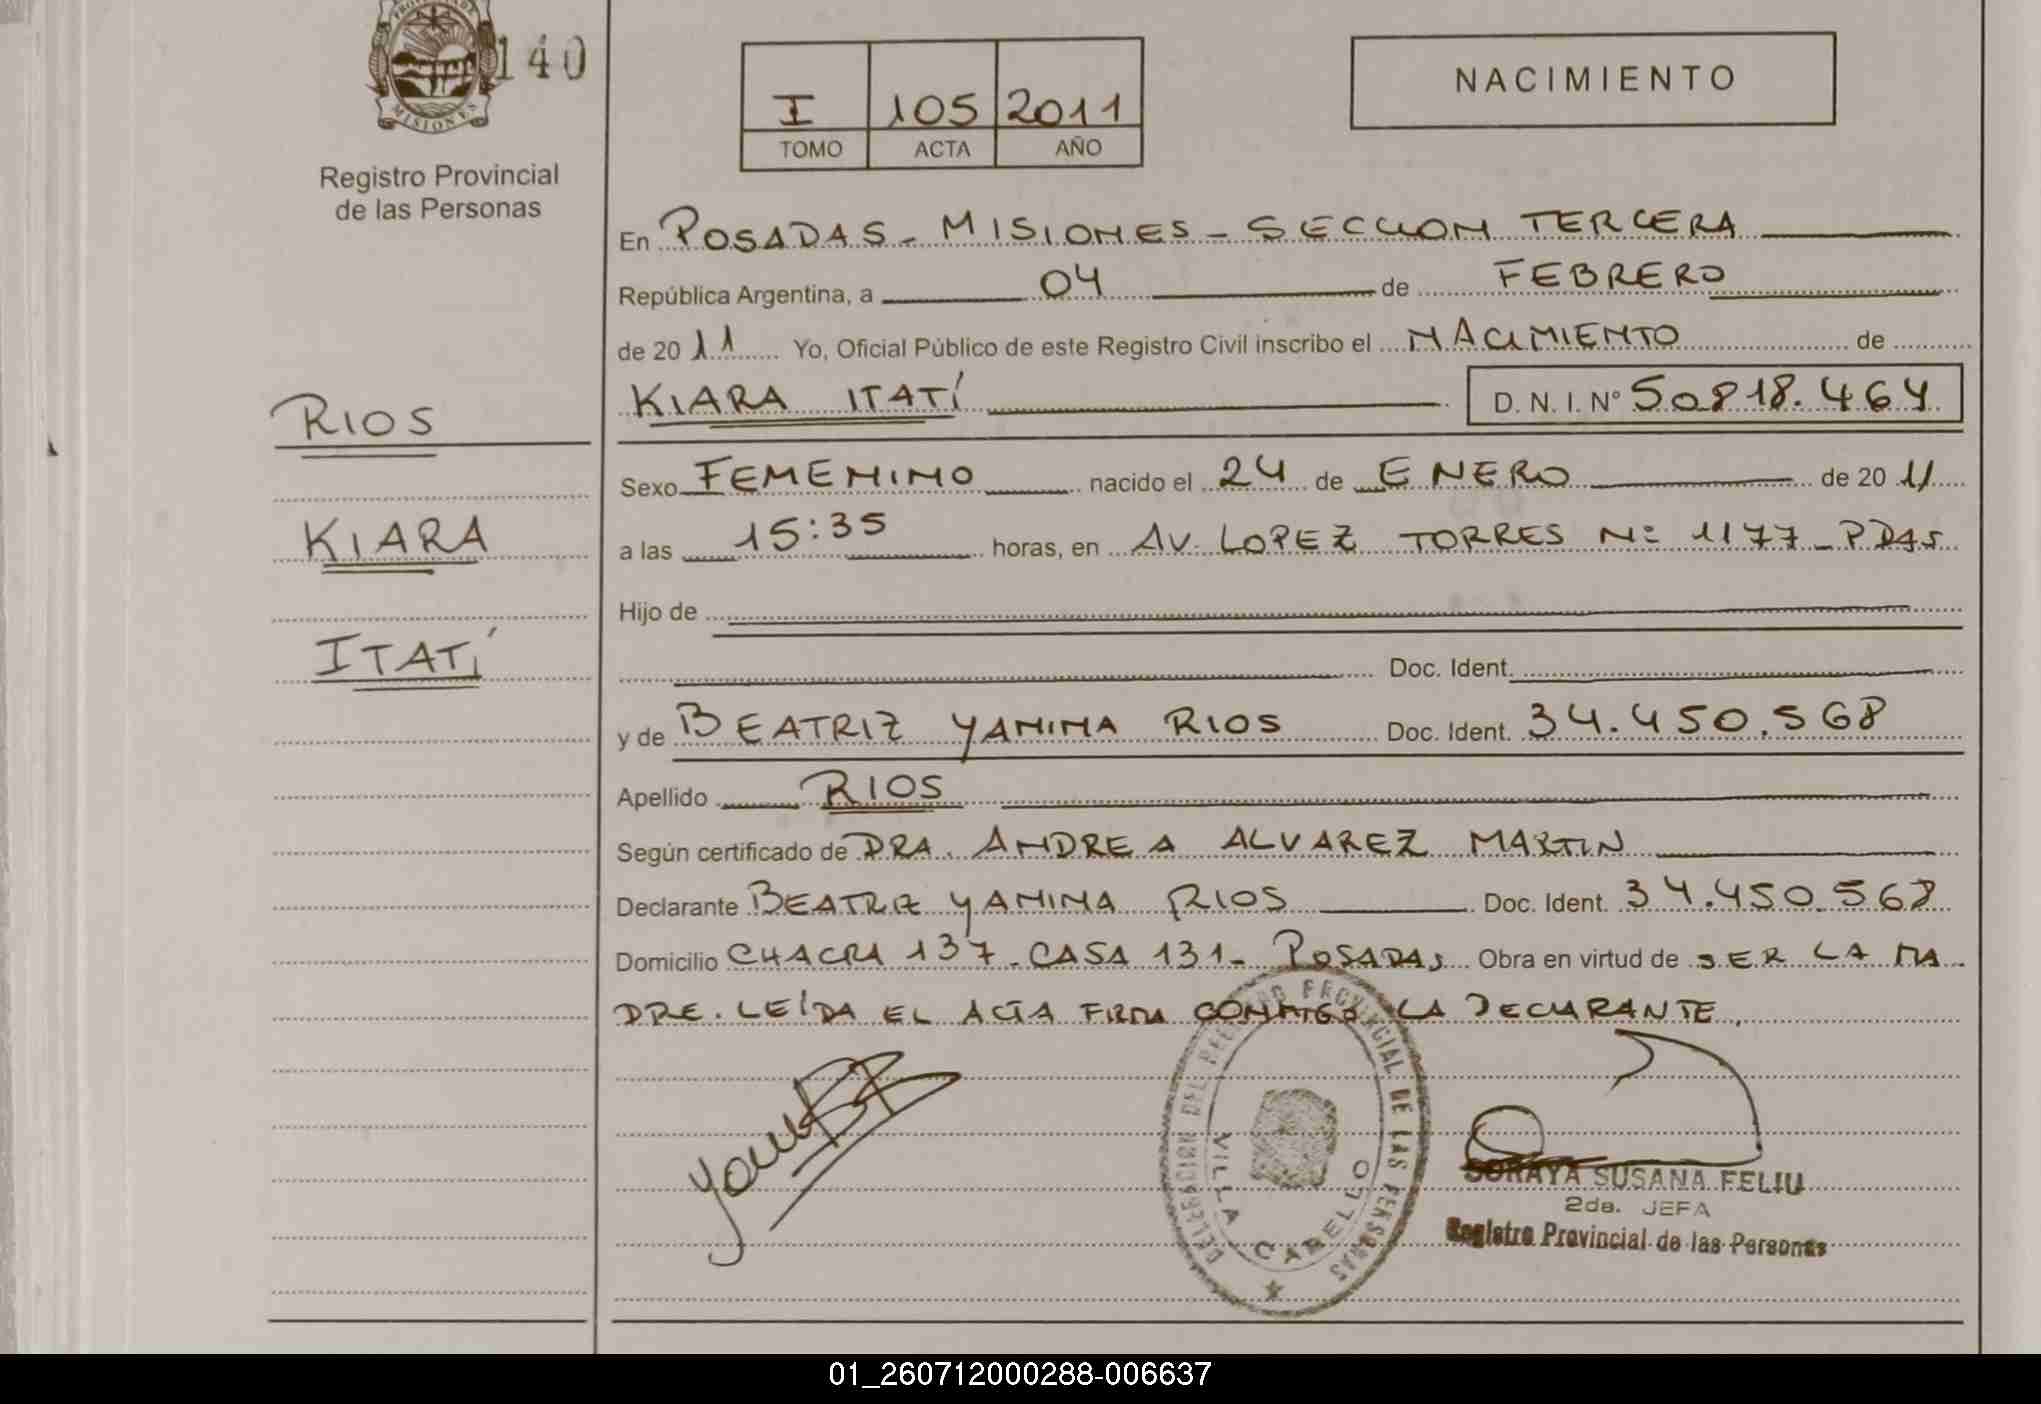 140
MISIONES
Registro Provincial
de las Personas
I 105 2011
TOMO ACTA AÑO
NACIMIENTO
En POSADAS - MISIONES - SECCION TERCERA
República Argentina, a 04 de FEBRERO
de 2011 Yo, Oficial Público de este Registro Civil inscribo el NACIMIENTO de
KIARA ITATÍ D. N. I. N° 50.818.464
RIOS
KIARA
ITATÍ
Sexo FEMENINO nacido el 24 de ENERO de 2011
a las 15:35 horas, en AV. LOPEZ TORRES N: 1177 - PDAS
Hijo de
Doc. Ident.
y de BEATRIZ YANINA RIOS Doc. Ident. 34.450.568
Apellido RIOS
Según certificado de DRA. ANDREA ALVAREZ MARTIN
Declarante BEATRIZ YANINA RIOS Doc. Ident. 34.450.568
Domicilio CHACRA 137 - CASA 131 - POSADAS Obra en virtud de SER LA MA-
DRE. LEÍDA EL ACTA FIRMA CONMIGO LA DECLARANTE.
DELEGACION DEL REGISTRO PROVINCIAL DE LAS PERSONAS
VILLA CABELLO
SORAYA SUSANA FELIU
2da. JEFA
Registro Provincial de las Personas
01_260712000288-006637